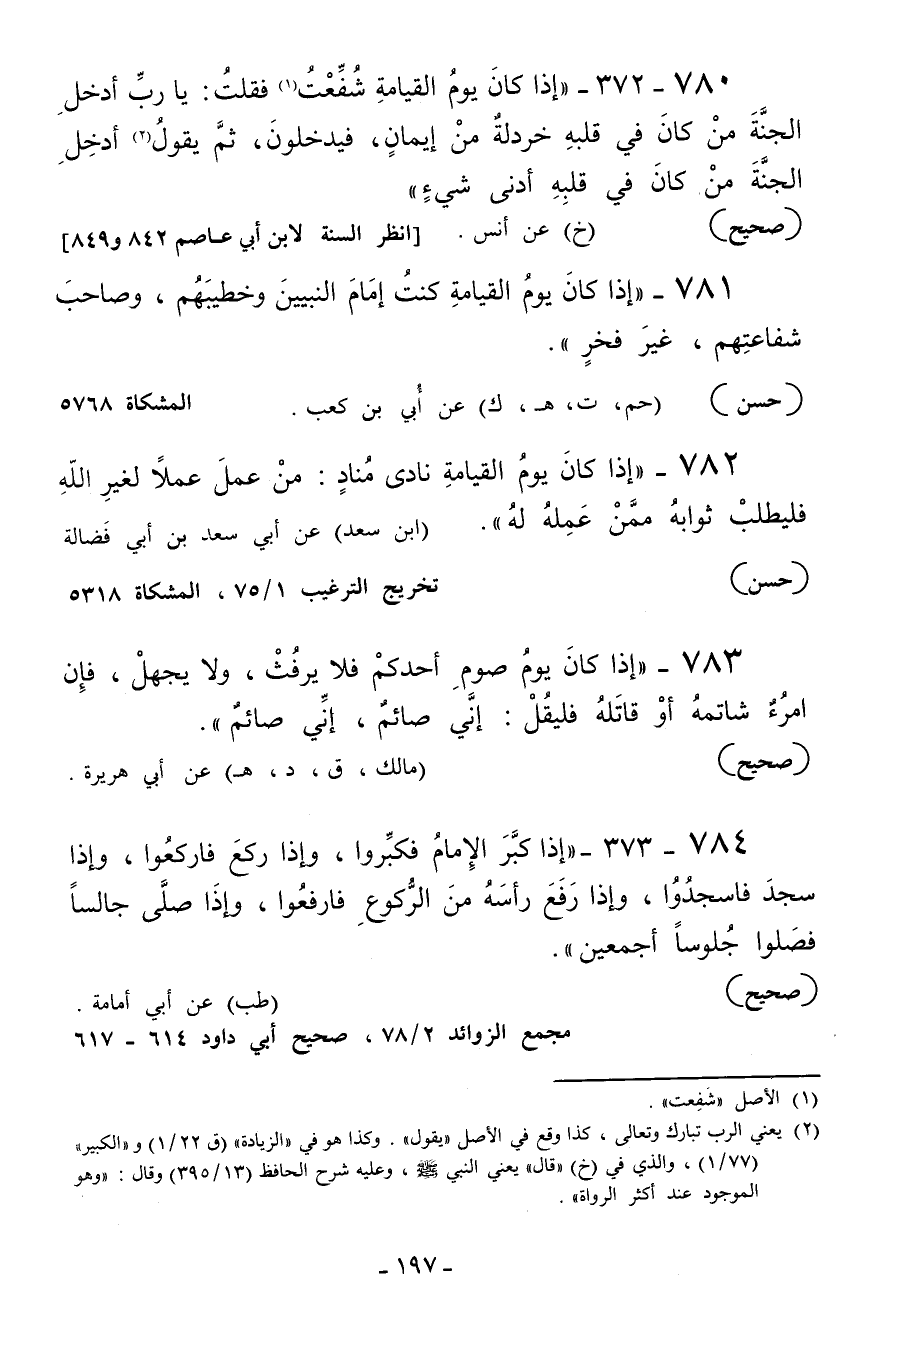 ٧٨٠ - ٣٧٢ - «إذا كانَ يومُ القيامةِ شُفِّعْتُ(١) فقلتُ: يا ربِّ أدخلِ
الجنَّةَ منْ كانَ في قلبهِ خردلةٌ منْ إيمانٍ، فيدخلونَ، ثمَّ يقولُ(٢) أدخِلِ
الجنَّةَ منْ كانَ في قلبِهِ أدنى شيءٍ»
(صحيح) (خ) عن أنس . [انظر السنة لابن أبي عاصم ٨٤٢ و٨٤٩]
٧٨١ - «إذا كانَ يومُ القيامةِ كنتُ إمَامَ النبيينَ وخطيبَهُم ، وصاحبَ
شفاعتِهم ، غيرَ فخرٍ ».
(حسن) (حم، ت، هـ، ك) عن أُبي بن كعب . المشكاة ٥٧٦٨
٧٨٢ - «إذا كانَ يومُ القيامةِ نادى مُنادٍ : منْ عملَ عملاً لغيرِ اللّهِ
فليطلبْ ثوابهُ ممَّنْ عَمِلهُ لهُ». (ابن سعد) عن أبي سعد بن أبي فَضالة
(حسن) تخريج الترغيب ٧٥/١ ، المشكاة ٥٣١٨
٧٨٣ - «إذا كانَ يومُ صومِ أحدكمْ فلا يرفُثْ ، ولا يجهلْ ، فإن
امرُءٌ شاتمهُ أوْ قاتَلهُ فليقُلْ : إنَّي صائمٌ ، إنِّي صائمٌ ».
(صحيح) (مالك ، ق ، د ، هـ) عن أبي هريرة .
٧٨٤ - ٣٧٣ -«إذا كبَّرَ الإمامُ فكبِّروا ، وإذا ركعَ فاركعُوا ، وإذا
سجدَ فاسجدُوُا ، وإذا رَفَعَ رأسَهُ منَ الرُّكوعِ فارفعُوا ، وإذَا صلَّى جالساً
فصَلوا جُلوساً أجمعين».
(صحيح) (طب) عن أبي أمامة .
مجمع الزوائد ٧٨/٢ ، صحيح أبي داود ٦١٤ - ٦١٧
(١) الأصل «شَفِعت» .
(٢) يعني الرب تبارك وتعالى ، كذا وقع في الأصل «يقول» . وكذا هو في «الزيادة» (ق ١/٢٢) و «الكبير»
(١/٧٧) ، والذي في (خ) «قال» يعني النبي ﷺ ، وعليه شرح الحافظ (٣٩٥/١٣) وقال : «وهو
الموجود عند أكثر الرواة» .
- ١٩٧ -